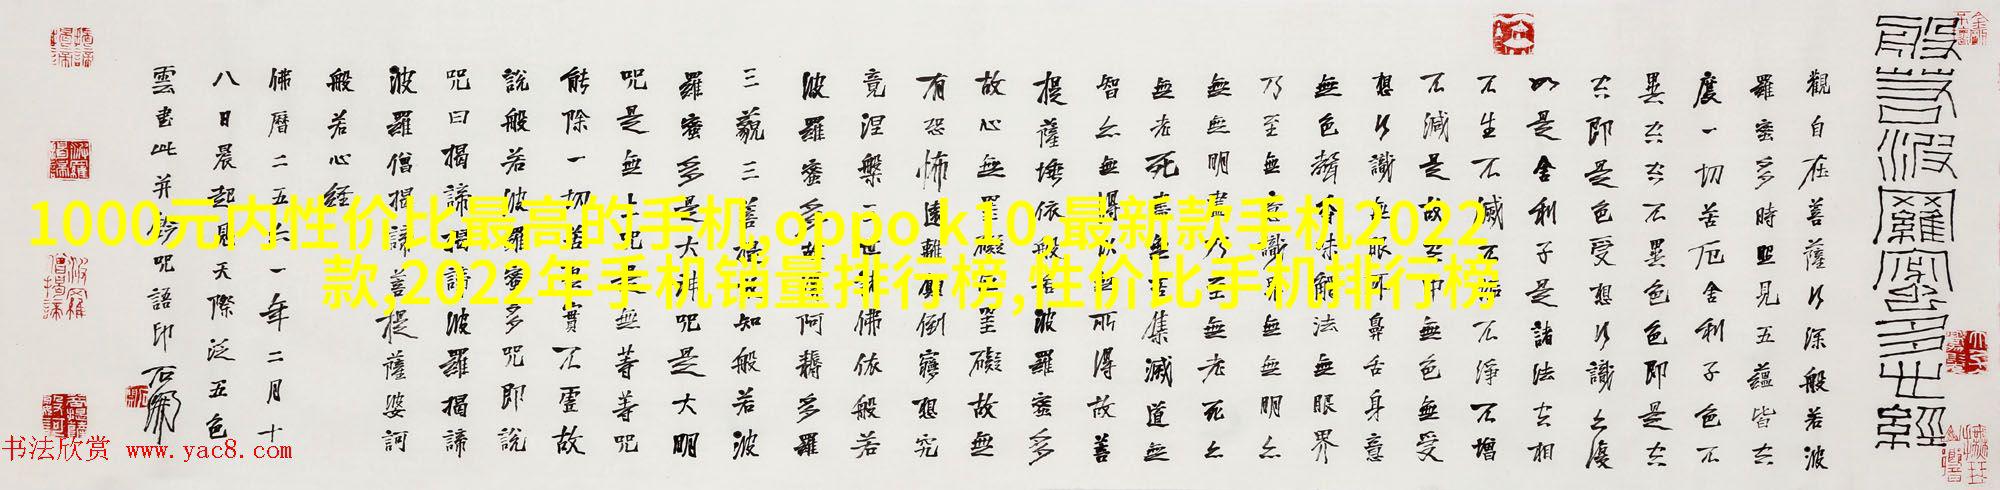 般若波羅蜜多心經
觀自在菩薩行深般若波
羅蜜多時照見五蘊皆空
度一切苦厄舍利子色不
異空空不異色色即是空
空即是色受想行識亦復
如是舍利子是諸法空相
不生不滅不垢不淨不增
不減是故空中無色無受
想行識無眼耳鼻舌身意
無色聲香味觸法無眼界
乃至無意識界無無明亦
無無明盡乃至無老死亦
無老死盡無苦集滅道無
智亦無得以無所得故菩
提薩埵依般若波羅蜜多
故心無罣礙無罣礙故無
有恐怖遠離顛倒夢想究
竟涅槃三世諸佛依般若
波羅蜜多故得阿耨多羅
三藐三菩提故知般若波
羅蜜多是大神咒是大明
咒是無上咒是無等等咒
能除一切苦真實不虛故
說般若波羅蜜多咒即說
咒曰揭諦揭諦波羅揭諦
波羅僧揭諦菩提薩婆訶
般若心経
佛曆二五六一年二月十
八日晨起見天際泛五色
雲書此并鈐咒語印
1000元内性价比最高的手机,oppo k10,最新款手机2022
款,2022年手机销量排行榜,性价比手机排行榜
书法欣赏 www.yac8.com